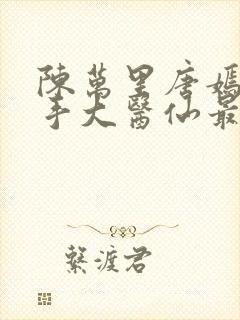 陳萬里唐嫣
手大醫仙最
繫渡君